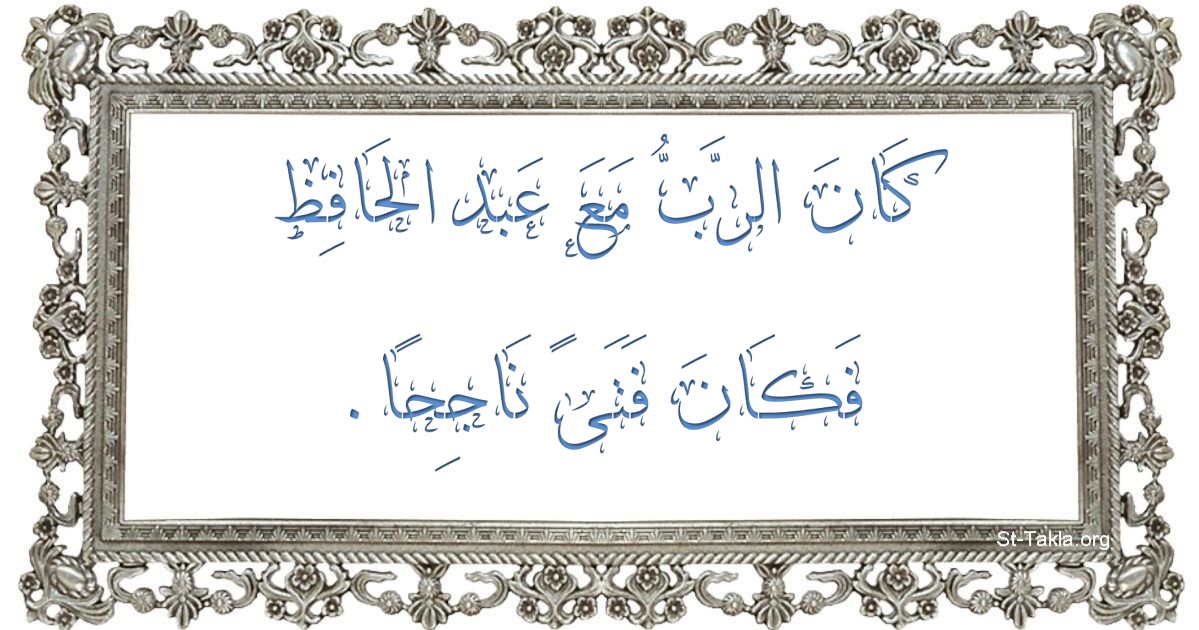 كَانَ الرَّبُّ مَعَ عَبْد الْحَافِظْ
فَكَانَ فَتَىً نَاجِحًا .
St-Takla.org